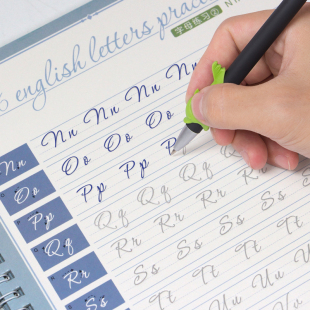 english letters practi
字母练习
Nn Nn Nn Nn Nn
Oo Oo Oo Oo
Pp Pp Pp Pp
Qq Qq Qq Qq
Rr Rr Rr Rr Rr
Ss Ss Ss Ss Ss
Tt Tt Tt Tt
Uu Uu Uu
Vv